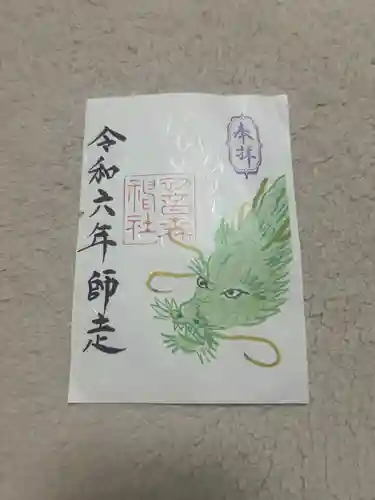 奉拝
令和六年師走